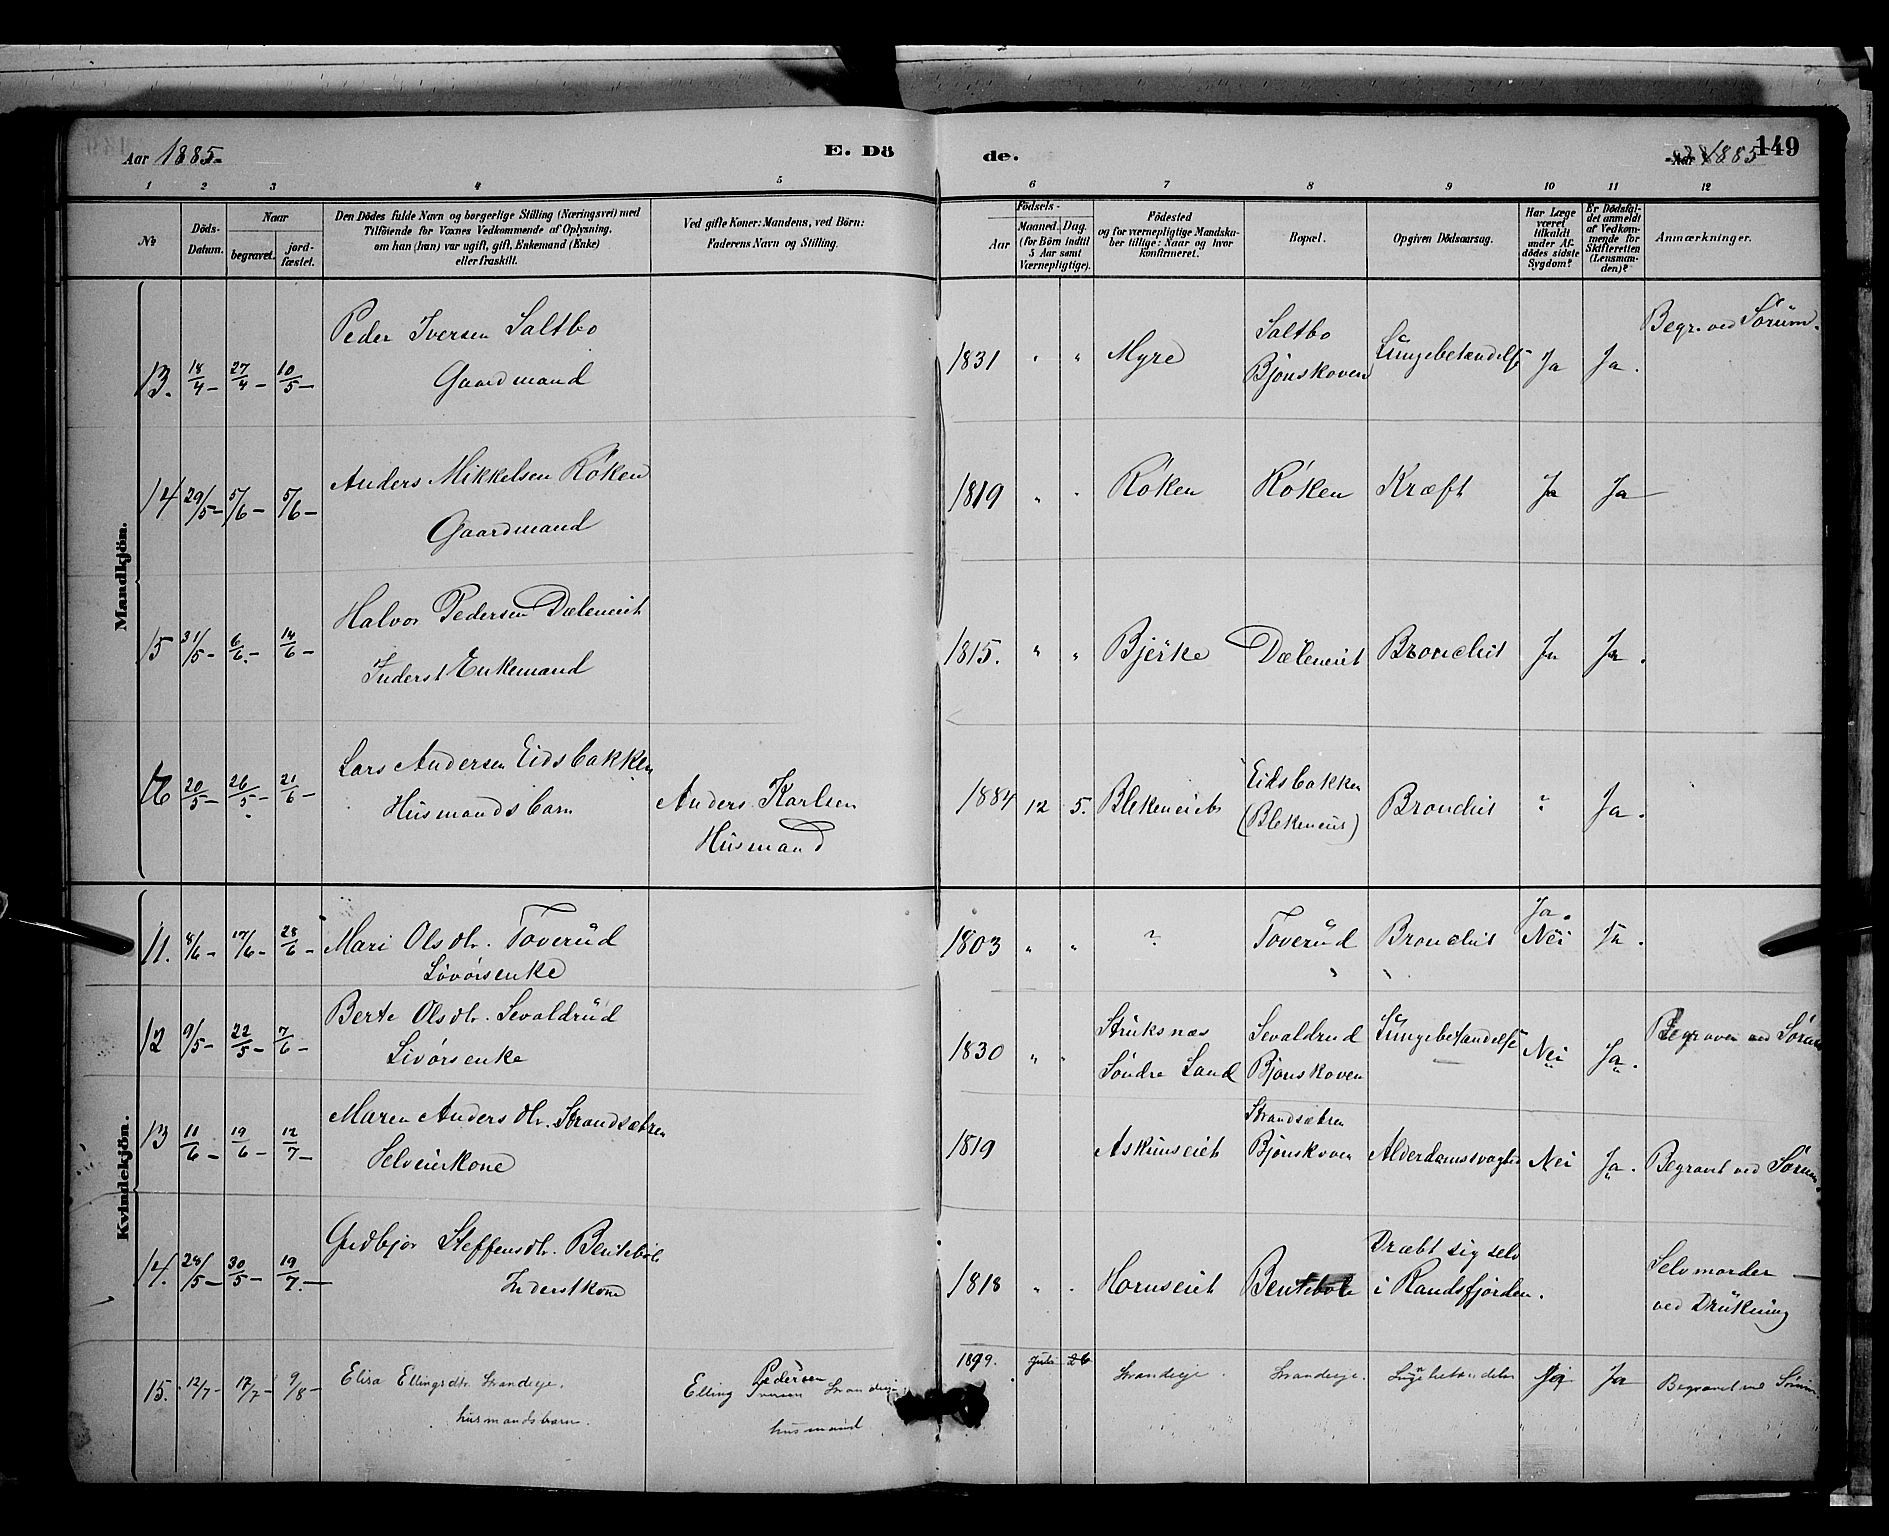 Aar 1885. E. Dö
1 2 3 4 5
No
Döds-Datum.
Naar
begravet. jordfæstet.
Den Dödes fulde Navn og borgerlige Stilling (Næringsvei) med
Tilföiende for Voxnes Vedkommende af Oplysning,
om han (hun) var ugift, gift, Enkemand (Enke)
eller fraskilt.
Ved gifte Koner: Mandens, ved Börn:
Faderens Navn og Stilling.
de. Aar 1885 149
6 7 8 9 10 11 12
Födsels-
Aar Maaned. Dag.
(for Börn indtil
5 Aar samt
Værnepligtige).
Födested
og for værnepligtige Mandska-
ber tillige: Naar og hvor
konfirmeret.
Bopæl.
Opgiven Dödsaarsag.
Har Læge
været
tilkaldt
under Af-
dödes sidste
Sygdom?
Er Dödsfal-
det anmeldt
af Vedkom-
mende for
Skifteretten
(Lensman-
den)?
Anmærkninger.
Mandkjön.
13. 18/4 - 27/4 - 10/5 - Peder Iversen Saltbo
Gaardmand
1831 " " Myre Saltbo
Bjönskoven Lungebetændelse Ja Ja. Begr. ved Sörum.
14 29/5 - 5/6 - 5/6 - Anders Mikkelsen Röken
Gaardmand
1819 " " Röken Röken Kræft Ja Ja
15 31/5 - 6/6 - 14/6 - Halvor Pedersen Dæleneiet
Inderst Enkemand
1815. " " Bjerke Dæleneiet Bronchit Ja Ja.
16 20/5 - 26/5 - 21/6 - Lars Andersen Eidsbakken
Husmandsbarn
Anders Karlsen
Husmand
1884 12 5. Blekeneiet Eidsbakken
(Blekeneiet) Bronchit ? Ja.
Kvindekjön.
11. 8/6 - 17/6 - 28/6 - Mari Olsdtr. Toverud
Livörsenke
1803 " " ? Toverud Bronchit Ja.
Nei Ja.
12 9/5 - 22/5 - 7/6 - Berte Olsdtr. Sevaldrud
Livörsenke
1830 " " Struksnæs
Söndre Land Sevaldrud
Bjönskoven Lungebetændelse Nei Ja. Begraven ved Sörum
13 11/6 - 19/6 - 12/7 - Maren Andersdtr. Strandsætren
Selveierkone
1819 Askimseiet Strandsætren
Bjönskoven Alderdomssvaghed Nei Ja. Begravet ved Sörum
14. 24/5 - 30/5 - 19/7 - Gudbjor Steffensdtr. Benteböle
Inderstkone
1818 " " Hornseiet Benteböle Dræbt sig selv
i Randsfjorden. Selvmorder
ved Drukning
15. 12/7 - 17/7 - 9/8 - Elisa Ellingsdtr. Strandeie.
husmandsbarn.
Pedersen
Elling Iversen Strandeie
husmand
1879. Juli 26 Strandeie. Strandeie. Lungebetændelse Ja Ja Begravet ved Sörum